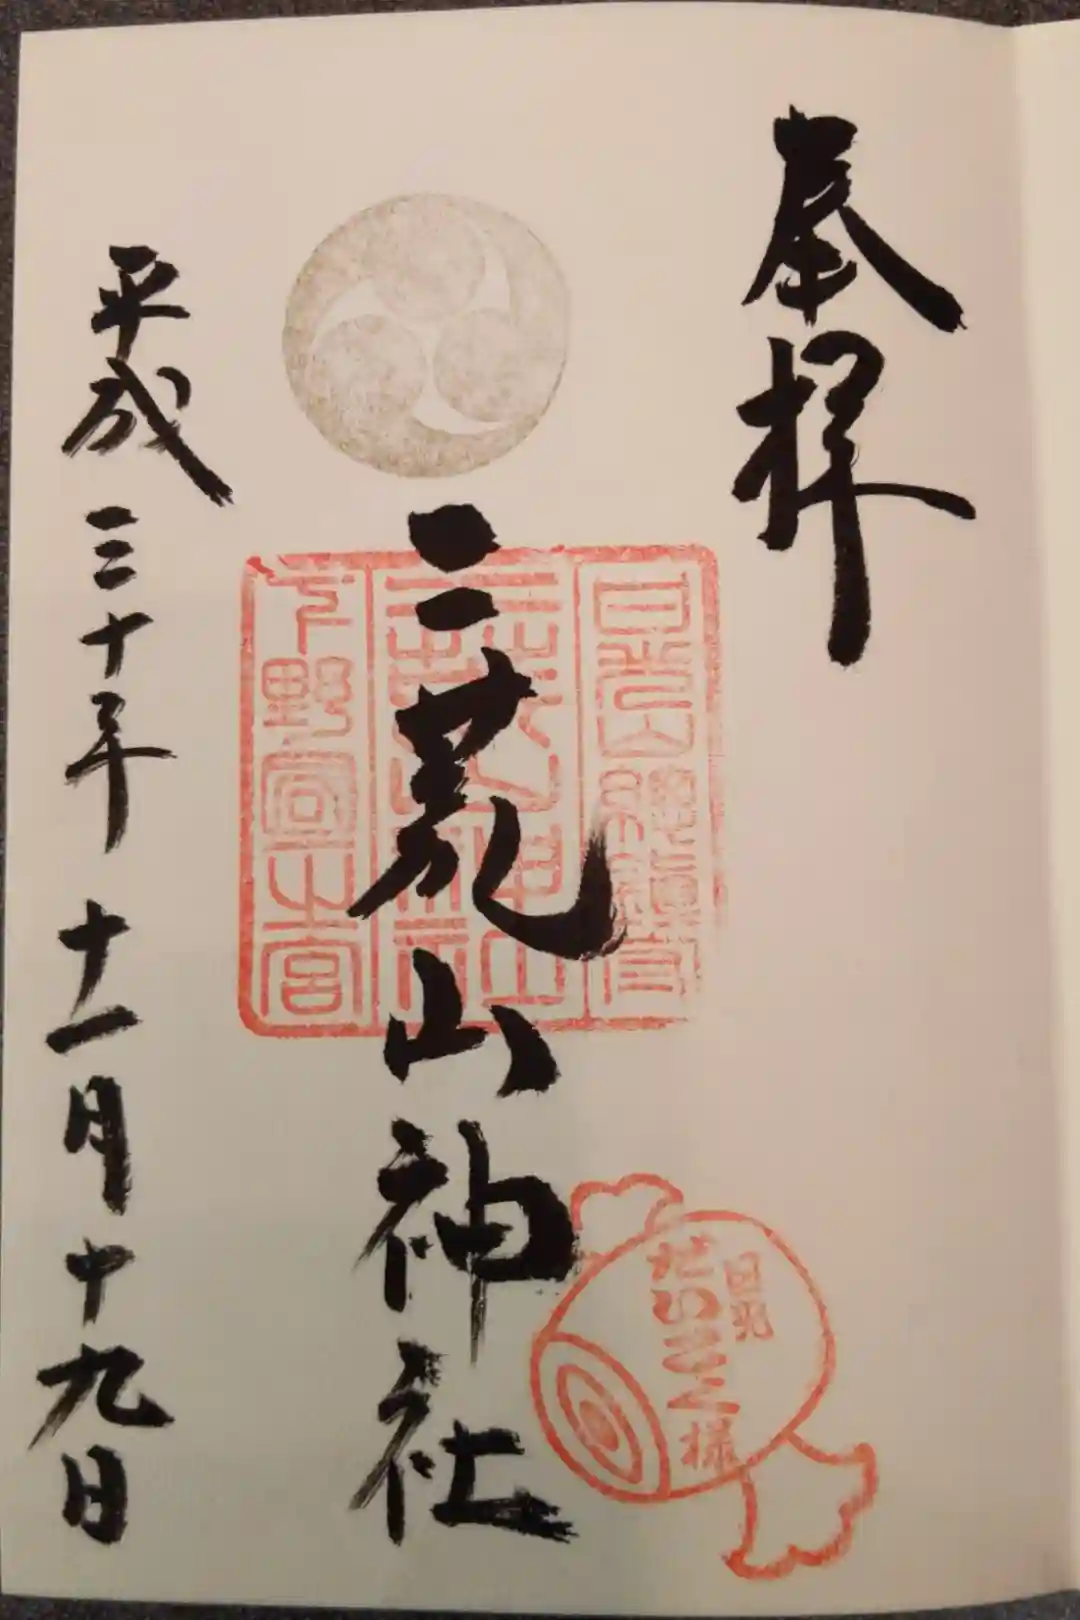 奉拝
日光山總鎮守
二荒山神社
二荒山神社
下野國一之宮
日光
だいこく様
平成三十年十一月十九日